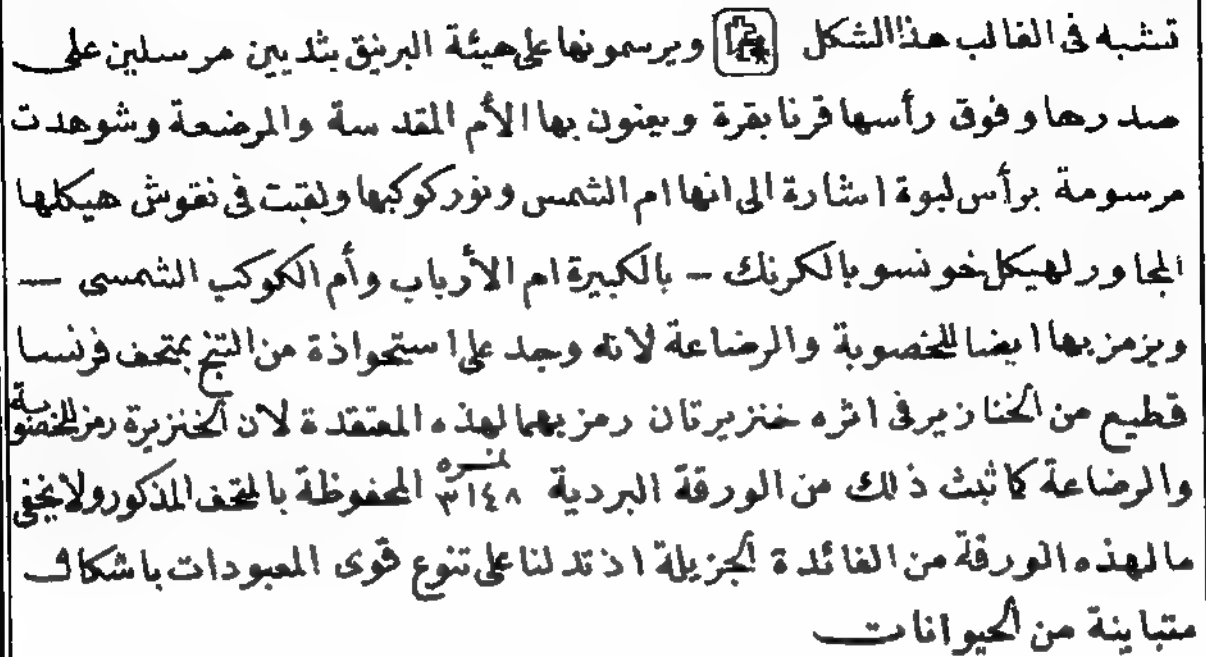 تشبه فى الغالب هذا الشكل ويرسمونها على هيئة البرنيق بثديين مرسلين على
صدرها وفوق رأسها قرنا بقرة ويعنون بها الأم المقدسة والمرضعة وشوهدت
مرسومة برأس لبوة اشارة الى انها ام الشمس ونور كوكبها ولقبت فى نقوش هيكلها
المجاور لهيكل خونسو بالكرنك – بالكبيرة ام الأرباب وأم الكوكب الشمسى –
ويزمز بها ايضا للخصوبة والرضاعة لانه وجد على استحواذة من بمتحف فرنسا
قطيع من الخنازير فى اثره خنزيرتان رمز بهما لهذه المعتقدة لان الخنزيرة رمز للخصوبة
والرضاعة كما ثبت ذلك من الورقة البردية نمره ٣١٤٨ المحفوظة بالمتحف المذكور ولا يخفى
ما لهذه الورقة من الفائدة الجزيلة اذ تدلنا على تنوع قوى المعبودات باشكال
متباينة من الحيوانات